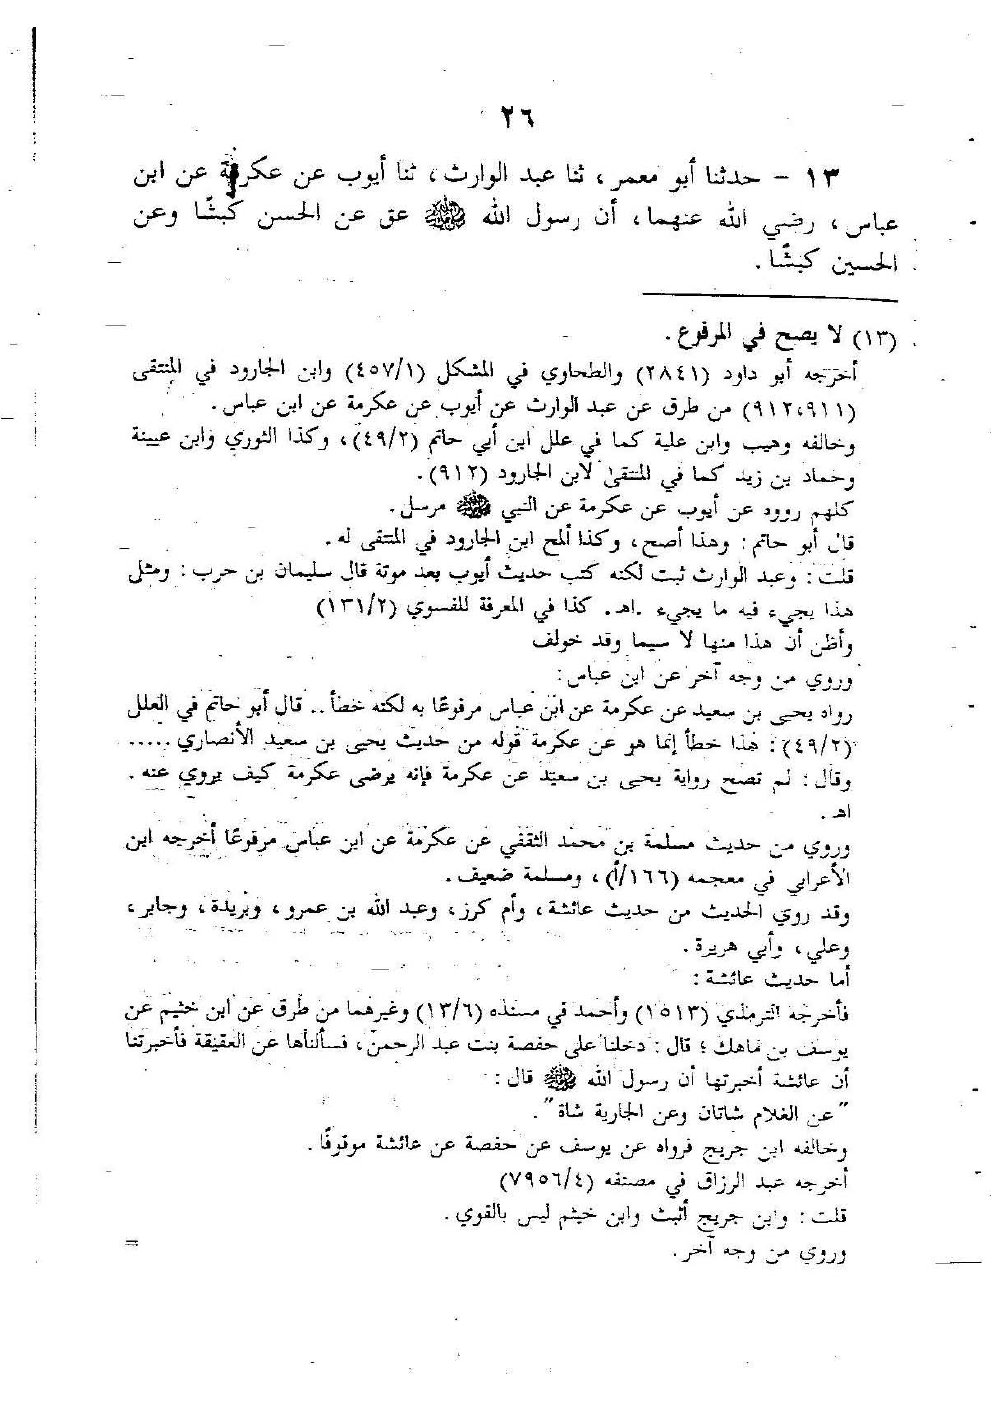 ٢٦
١٣ - حدثنا أبو معمر، ثنا عبد الوارث، ثنا أيوب عن عكرمة عن ابن
عباس، رضي الله عنهما، أن رسول الله ﷺ عق عن الحسن كبشًا وعن
الحسين كبشًا.
(١٣) لا يصح في المرفوع.
أخرجه أبو داود (٢٨٤١) والطحاوي في المشكل (٤٥٧/١) وابن الجارود في المنتقى
(٩١٢،٩١١) من طرق عن عبد الوارث عن أيوب عن عكرمة عن ابن عباس.
وخالفه وهيب وابن علية كما في علل ابن أبي حاتم (٤٩/٢)، وكذا الثوري وابن عيينة
وحماد بن زيد كما في المنتقى لابن الجارود (٩١٢).
كلهم روود عن أيوب عن عكرمة عن النبي ﷺ مرسل.
قال أبو حاتم: وهذا أصح، وكذا ألمح ابن الجارود في المنتقى له.
قلت: وعبد الوارث ثبت لكنه كتب حديث أيوب بعد موتة قال سليمان بن حرب: ومثل
هذا يجيء فيه ما يجيء .اهـ. كذا في المعرفة للفسوي (١٣١/٢)
وأظن أن هذا منها لا سيما وقد خولف
وروي من وجه آخر عن ابن عباس:
رواه يحيى بن سعيد عن عكرمة عن ابن عباس مرفوعًا به لكنه خطأ.. قال أبو حاتم في العلل
(٤٩/٢): هذا خطأ إنما هو عن عكرمة قوله من حديث يحيى بن سعيد الأنصاري .....
وقال: لم تصح رواية يحيى بن سعيد عن عكرمة فإنه يرضى عكرمة كيف يروي عنه.
اهـ.
وروي من حديث مسلمة بن محمد الثقفي عن عكرمة عن ابن عباس مرفوعًا أخرجه ابن
الأعرابي في معجمه (١٦٦/أ)، ومسلمة ضعيف.
وقد روي الحديث من حديث عائشة، وأم كرز، وعبد الله بن عمرو، وبريدة، وجابر،
وعلي، وأبي هريرة.
أما حديث عائشة:
فأخرجه الترمذي (١٥١٣) وأحمد في مسنده (١٣/٦) وغيرهما من طرق عن ابن خثيم عن
يوسف بن ماهك؛ قال: دخلنا على حفصة بنت عبد الرحمن، فسألناها عن العقيقة فأخبرتنا
أن عائشة أخبرتها أن رسول الله ﷺ قال:
"عن الغلام شاتان وعن الجارية شاة".
وخالفه ابن جريج فرواه عن يوسف عن حفصة عن عائشة موقوفًا.
أخرجه عبد الرزاق في مصنفه (٧٩٥٦/٤)
قلت: وابن جريج أثبت وابن خيثم ليس بالقوي.
وروي من وجه آخر.
=